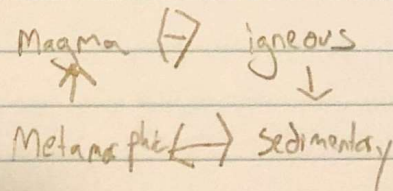 Magma igneous
Metamorphic sedimentary